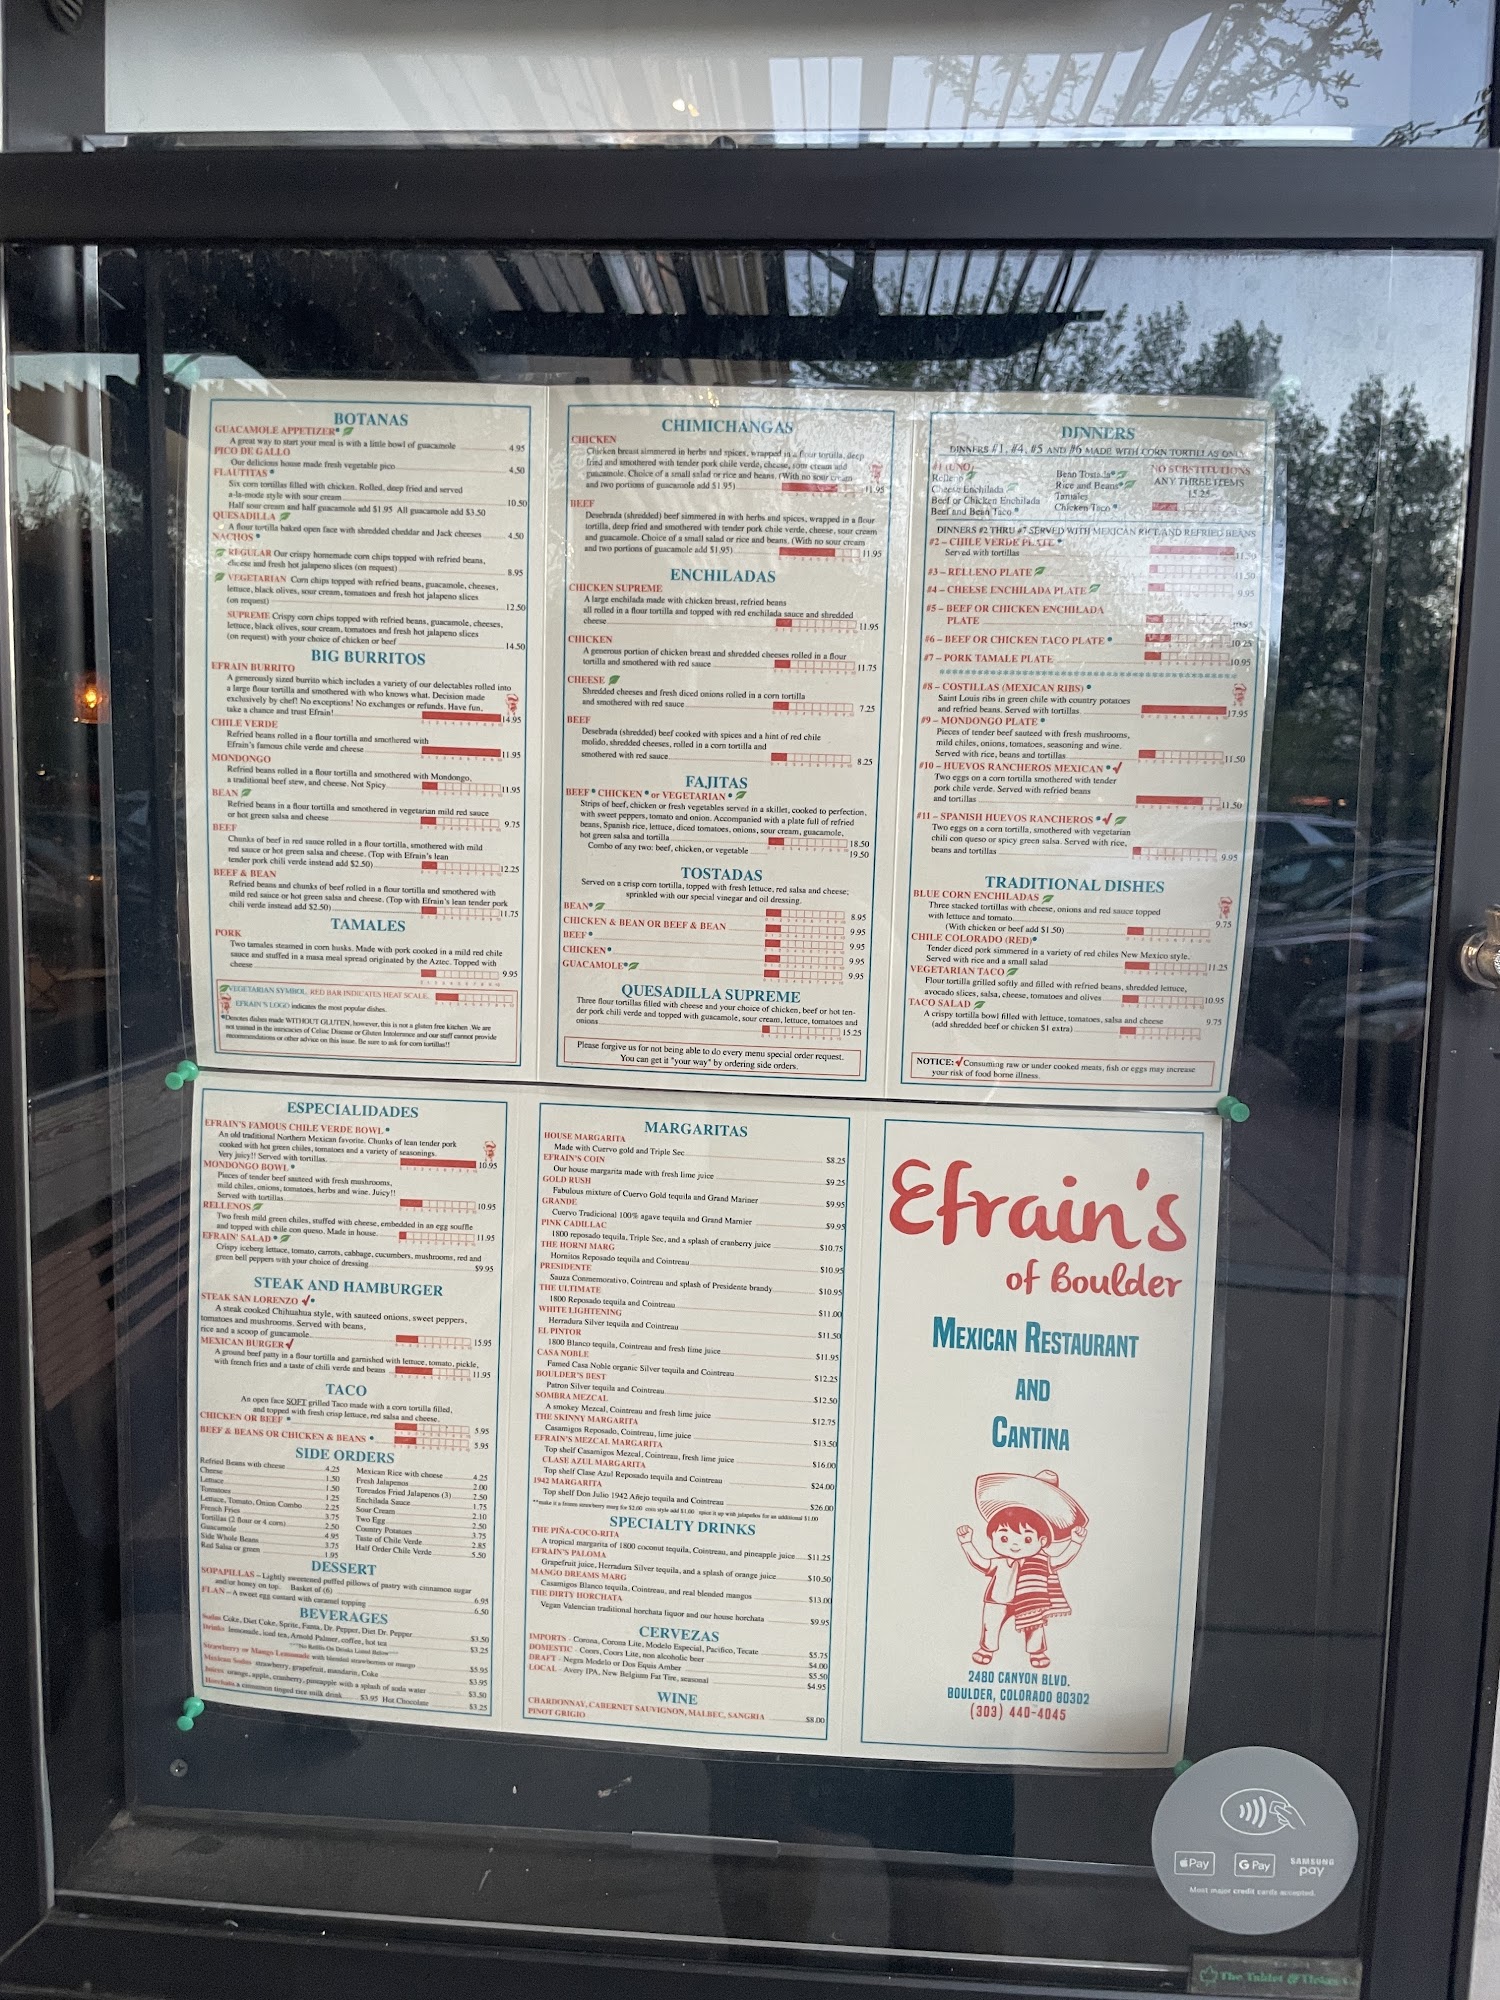 BOTANAS
GUACAMOLE APPETIZER*
A great way to start your meal is with a little bowl of guacamole 4.95
PICO DE GALLO
Our delicious house made fresh vegetable pico 4.50
FLAUTITAS *
Six corn tortillas filled with chicken. Rolled, deep fried and served
a-la-mode style with sour cream 10.50
Half sour cream and half guacamole add $1.95 All guacamole add $3.50
QUESADILLA
A flour tortilla baked open face with shredded cheddar and Jack cheeses 4.50
NACHOS *
REGULAR Our crispy homemade corn chips topped with refried beans,
cheese and fresh hot jalapeno slices (on request) 8.95
VEGETARIAN Corn chips topped with refried beans, guacamole, cheeses,
lettuce, black olives, sour cream, tomatoes and fresh hot jalapeno slices
(on request) 12.50
SUPREME Crispy corn chips topped with refried beans, guacamole, cheeses,
lettuce, black olives, sour cream, tomatoes and fresh hot jalapeno slices
(on request) with your choice of chicken or beef 14.50
BIG BURRITOS
EFRAIN BURRITO
A generously sized burrito which includes a variety of our delectables rolled into
a large flour tortilla and smothered with who knows what. Decision made
exclusively by chef! No exceptions! No exchanges or refunds. Have fun,
take a chance and trust Efrain! 14.95
CHILE VERDE
Refried beans rolled in a flour tortilla and smothered with
Efrain's famous chile verde and cheese 11.95
MONDONGO
Refried beans rolled in a flour tortilla and smothered with Mondongo,
a traditional beef stew, and cheese. Not Spicy 11.95
BEAN
Refried beans rolled in a flour tortilla and smothered in vegetarian mild red sauce
or hot green salsa and cheese 9.75
BEEF
Chunks of beef in red sauce rolled in a flour tortilla, smothered with mild
red sauce or hot green salsa and cheese. (Top with Efrain's lean
tender pork chili verde instead add $2.50) 12.25
BEEF & BEAN
Refried beans and chunks of beef rolled in a flour tortilla and smothered with
mild red sauce or hot green salsa and cheese. (Top with Efrain's lean tender pork
chili verde instead add $2.50) 11.75
TAMALES
PORK
Two tamales steamed in corn husks. Made with pork cooked in a mild red chile
sauce and stuffed in a masa meal spread originated by the Aztec. Topped with
cheese 9.95
VEGETARIAN SYMBOL RED BAR INDICATES HEAT SCALE.
EFRAIN'S LOGO indicates the most popular dishes.
*Denotes dishes made WITHOUT GLUTEN, however, this is not a gluten free kitchen. We are
not trained in the intricacies of Celiac Disease or Gluten Intolerance and our staff cannot provide
recommendations or other advice on this issue. Be sure to ask for corn tortillas!!
CHIMICHANGAS
CHICKEN
Chicken breast simmered in herbs and spices, wrapped in a flour tortilla, deep
fried and smothered with tender pork chile verde, cheese, sour cream and
guacamole. Choice of a small salad or rice and beans. (With no sour cream
and two portions of guacamole add $1.95) 11.95
BEEF
Desebrada (shredded) beef simmered in with herbs and spices, wrapped in a flour
tortilla, deep fried and smothered with tender pork chile verde, cheese, sour cream
and guacamole. Choice of a small salad or rice and beans. (With no sour cream
and two portions of guacamole add $1.95) 11.95
ENCHILADAS
CHICKEN SUPREME
A large enchilada made with chicken breast, refried beans
all rolled in a flour tortilla and topped with red enchilada sauce and shredded
cheese 11.95
CHICKEN
A generous portion of chicken breast and shredded cheeses rolled in a flour
tortilla and smothered with red sauce 11.75
CHEESE
Shredded cheeses and fresh diced onions rolled in a corn tortilla
and smothered with red sauce 7.25
BEEF
Desebrada (shredded) beef cooked with spices and a hint of red chile
molido, shredded cheeses, rolled in a corn tortilla and
smothered with red sauce 8.25
FAJITAS
BEEF * CHICKEN * or VEGETARIAN *
Strips of beef, chicken or fresh vegetables served in a skillet, cooked to perfection,
with sweet peppers, tomato and onion. Accompanied with a plate full of refried
beans, Spanish rice, lettuce, diced tomatoes, onions, sour cream, guacamole,
hot green salsa and tortilla 18.50
Combo of any two: beef, chicken, or vegetable 19.50
TOSTADAS
Served on a crisp corn tortilla, topped with fresh lettuce, red salsa and cheese;
sprinkled with our special vinegar and oil dressing.
BEAN* 8.95
CHICKEN & BEAN OR BEEF & BEAN 9.95
BEEF * 9.95
CHICKEN* 9.95
GUACAMOLE* 9.95
QUESADILLA SUPREME
Three flour tortillas filled with cheese and your choice of chicken, beef or hot ten-
der pork chili verde and topped with guacamole, sour cream, lettuce, tomatoes and
onions 15.25
Please forgive us for not being able to do every menu special order request.
You can get it "your way" by ordering side orders.
DINNERS
DINNERS #1, #4, #5 AND #6 MADE WITH CORN TORTILLAS ONLY
#1 (UNO)
Relleno
Cheese Enchilada
Beef or Chicken Enchilada
Beef and Bean Taco *
Bean Tostada*
Rice and Beans*
Tamales
Chicken Taco *
NO SUBSTITUTIONS
ANY THREE ITEMS
15.25
DINNERS #2 THRU #7 SERVED WITH MEXICAN RICE AND REFRIED BEANS
#2 – CHILE VERDE PLATE *
Served with tortillas 11.50
#3 – RELLENO PLATE 11.50
#4 – CHEESE ENCHILADA PLATE 9.95
#5 – BEEF OR CHICKEN ENCHILADA
PLATE 10.95
#6 – BEEF OR CHICKEN TACO PLATE * 10.25
#7 – PORK TAMALE PLATE 10.95
#8 – COSTILLAS (MEXICAN RIBS) *
Saint Louis ribs in green chile with country potatoes
and refried beans. Served with tortillas 17.95
#9 – MONDONGO PLATE *
Pieces of tender beef sauteed with fresh mushrooms,
mild chiles, onions, tomatoes, seasoning and wine.
Served with rice, beans and tortillas 11.50
#10 – HUEVOS RANCHEROS MEXICAN * ✓
Two eggs on a corn tortilla smothered with tender
pork chile verde. Served with refried beans
and tortillas 11.50
#11 – SPANISH HUEVOS RANCHEROS * ✓
Two eggs on a corn tortilla, smothered with vegetarian
chili con queso or spicy green salsa. Served with rice,
beans and tortillas 9.95
TRADITIONAL DISHES
BLUE CORN ENCHILADAS
Three stacked tortillas with cheese, onions and red sauce topped
with lettuce and tomato 9.75
(With chicken or beef add $1.50)
CHILE COLORADO (RED)*
Tender diced pork simmered in a variety of red chiles New Mexico style.
Served with rice and a small salad 11.25
VEGETARIAN TACO
Flour tortilla grilled softly and filled with refried beans, shredded lettuce,
avocado slices, salsa, cheese, tomatoes and olives 10.95
TACO SALAD
A crispy tortilla bowl filled with lettuce, tomatoes, salsa and cheese 9.75
(add shredded beef or chicken $1 extra)
NOTICE: ✓ Consuming raw or under cooked meats, fish or eggs may increase
your risk of food borne illness.
ESPECIALIDADES
EFRAIN'S FAMOUS CHILE VERDE BOWL *
An old traditional Northern Mexican favorite. Chunks of lean tender pork
cooked with hot green chiles, tomatoes and a variety of seasonings.
Very juicy!! Served with tortillas. 10.95
MONDONGO BOWL *
Pieces of tender beef sauteed with fresh mushrooms,
mild chiles, onions, tomatoes, herbs and wine. Juicy!!
Served with tortillas 10.95
RELLENOS
Two fresh mild green chiles, stuffed with cheese, embedded in an egg souffle
and topped with chile con queso. Made in house 11.95
EFRAIN' SALAD *
Crispy iceberg lettuce, tomato, carrots, cabbage, cucumbers, mushrooms, red and
green bell peppers with your choice of dressing $9.95
STEAK AND HAMBURGER
STEAK SAN LORENZO ✓*
A steak cooked Chihuahua style, with sauteed onions, sweet peppers,
tomatoes and mushrooms. Served with beans,
rice and a scoop of guacamole 15.95
MEXICAN BURGER ✓
A ground beef patty in a flour tortilla and garnished with lettuce, tomato, pickle,
with french fries and a taste of chili verde and beans 11.95
TACO
An open face SOFT grilled Taco made with a corn tortilla filled,
and topped with fresh crisp lettuce, red salsa and cheese.
CHICKEN OR BEEF * 5.95
BEEF & BEANS OR CHICKEN & BEANS * 5.95
SIDE ORDERS
Refried Beans with cheese 4.25
Cheese 1.50
Lettuce 1.50
Tomatoes 1.25
Lettuce, Tomato, Onion Combo 2.25
French Fries 3.75
Tortillas (2 flour or 4 corn) 2.50
Guacamole 4.95
Side Whole Beans 3.75
Red Salsa or green 1.95
Mexican Rice with cheese 4.25
Fresh Jalapenos 2.00
Toreados Fried Jalapenos (3) 2.50
Enchilada Sauce 1.75
Sour Cream 2.10
Two Egg 2.50
Country Potatoes 3.75
Taste of Chile Verde 2.85
Half Order Chile Verde 5.50
DESSERT
SOPAPILLAS – Lightly sweetened puffed pillows of pastry with cinnamon sugar
and/or honey on top. Basket of (6) 6.95
FLAN – A sweet egg custard with caramel topping 6.50
BEVERAGES
Sodas Coke, Diet Coke, Sprite, Fanta, Dr. Pepper, Diet Dr. Pepper $3.50
Drinks lemonade, iced tea, Arnold Palmer, coffee, hot tea $3.25
***No Refills On Drinks Listed Below***
Strawberry or Mango Lemonade with blended strawberries or mango $5.95
Mexican Sodas strawberry, grapefruit, mandarin, Coke $3.95
Juices orange, apple, cranberry, pineapple with a splash of soda water $3.50
Horchata a cinnamon tinged rice milk drink $3.95 Hot Chocolate $3.25
MARGARITAS
HOUSE MARGARITA
Made with Cuervo gold and Triple Sec $8.25
EFRAIN'S COIN
Our house margarita made with fresh lime juice $9.25
GOLD RUSH
Fabulous mixture of Cuervo Gold tequila and Grand Mariner $9.95
GRANDE
Cuervo Tradicional 100% agave tequila and Grand Marnier $9.95
PINK CADILLAC
1800 reposado tequila, Triple Sec, and a splash of cranberry juice $10.75
THE HORNI MARG
Hornitos Reposado tequila and Cointreau $10.95
PRESIDENTE
Sauza Conmemorativo, Cointreau and splash of Presidente brandy $10.95
THE ULTIMATE
1800 Reposado tequila and Cointreau $11.00
WHITE LIGHTENING
Herradura Silver tequila and Cointreau $11.50
EL PINTOR
1800 Blanco tequila, Cointreau and fresh lime juice $11.95
CASA NOBLE
Famed Casa Noble organic Silver tequila and Cointreau $12.25
BOULDER'S BEST
Patron Silver tequila and Cointreau $12.50
SOMBRA MEZCAL
A smokey Mezcal, Cointreau and fresh lime juice $12.75
THE SKINNY MARGARITA
Casamigos Reposado, Cointreau, lime juice $13.50
EFRAIN'S MEZCAL MARGARITA
Top shelf Casamigos Mezcal, Cointreau, fresh lime juice $16.00
CLASE AZUL MARGARITA
Top shelf Clase Azul Reposado tequila and Cointreau $24.00
1942 MARGARITA
Top shelf Don Julio 1942 Añejo tequila and Cointreau $26.00
**make it a frozen strawberry marg for $2.00 coin style add $1.00 spice it up with jalapeños for an additional $1.00
SPECIALTY DRINKS
THE PIÑA-COCO-RITA
A tropical margarita of 1800 coconut tequila, Cointreau, and pineapple juice $11.25
EFRAIN'S PALOMA
Grapefruit juice, Herradura Silver tequila, and a splash of orange juice $10.50
MANGO DREAMS MARG
Casamigos Blanco tequila, Cointreau, and real blended mangos $13.00
THE DIRTY HORCHATA
Vegan Valencian traditional horchata liquor and our house horchata $9.95
CERVEZAS
IMPORTS - Corona, Corona Lite, Modelo Especial, Pacifico, Tecate $5.75
DOMESTIC - Coors, Coors Lite, non alcoholic beer $4.00
DRAFT - Negra Modelo or Dos Equis Amber $5.50
LOCAL - Avery IPA, New Belgium Fat Tire, seasonal $4.95
WINE
CHARDONNAY, CABERNET SAUVIGNON, MALBEC, SANGRIA $8.00
PINOT GRIGIO
Efrain's
of Boulder
MEXICAN RESTAURANT
AND
CANTINA
2480 CANYON BLVD.
BOULDER, COLORADO 80302
(303) 440-4045
Pay
G Pay
SAMSUNG
pay
Most major credit cards accepted.
The Tablet &